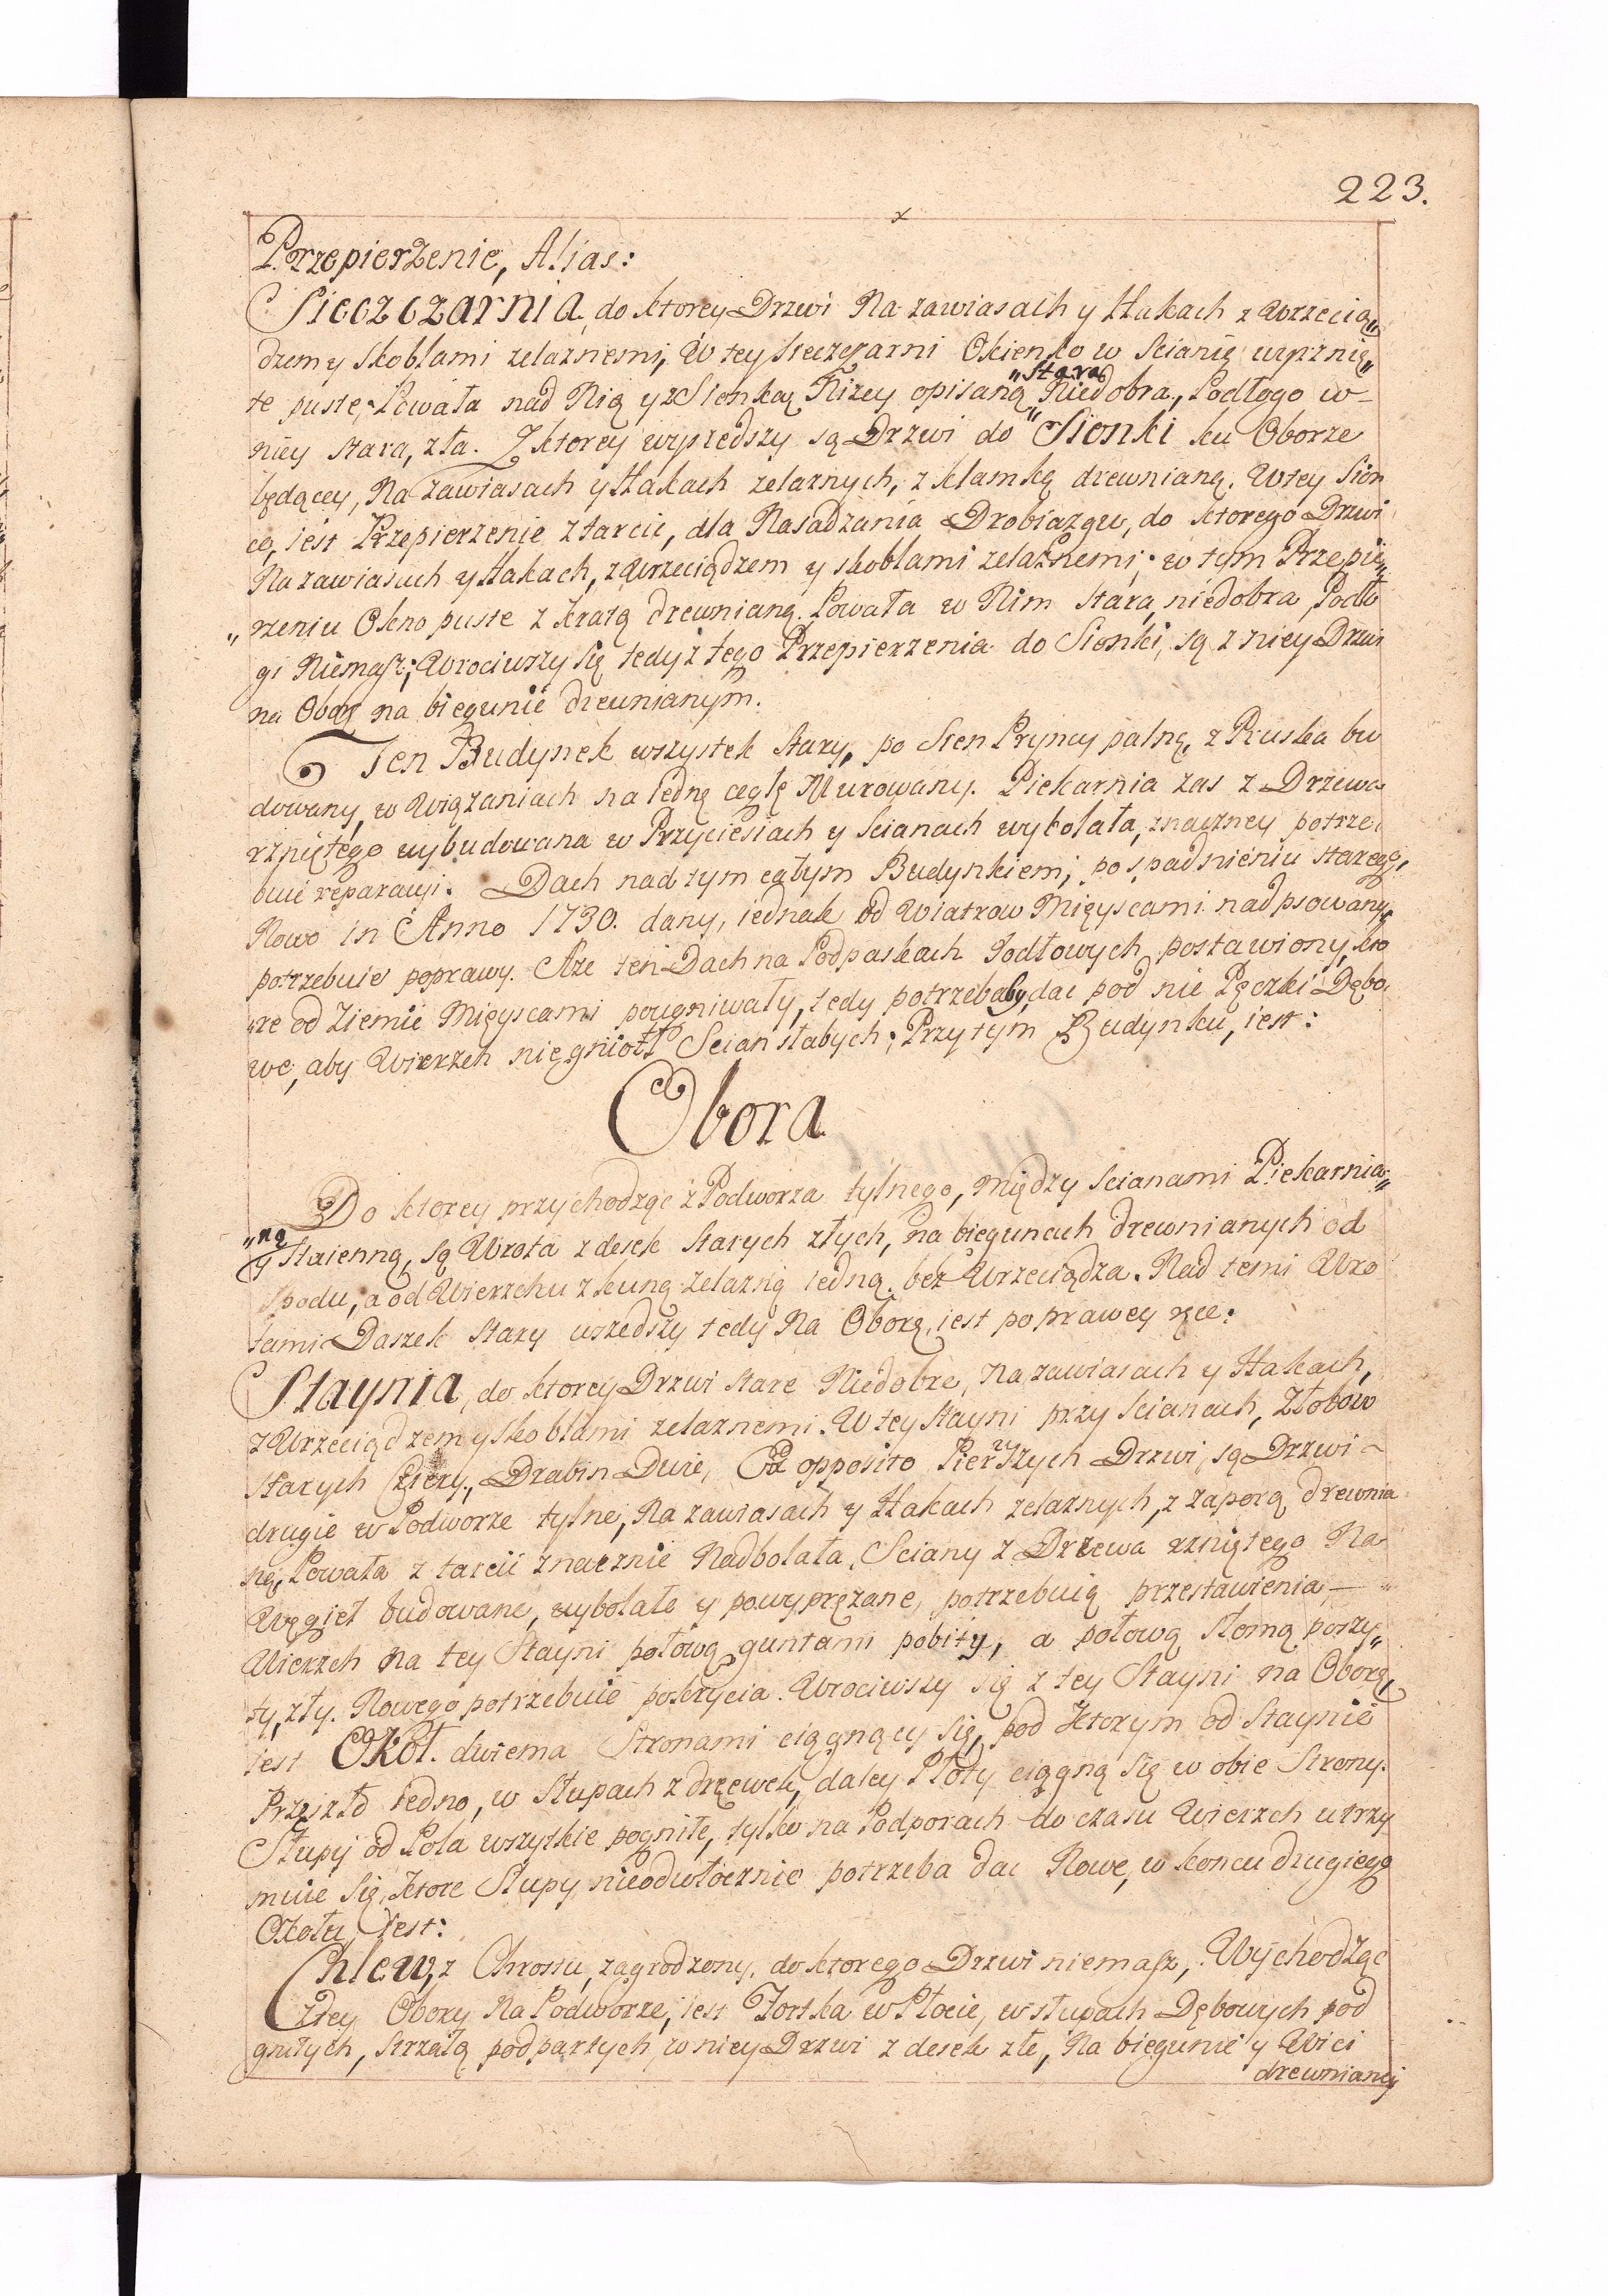 223.
Przepierzenie, Alias:
Sieczczarnia, do ktorey Drzwi Na zawiasach y Hakach z Wrzecią„
dzem y skoblami zelaznemi, W tey Sieczczarni Okienko w Scianie urznię„
te puste, Powała nad Nią y z Sionką Nizey opisaną „Stara„ Niedobra, Podłogo w-
niey stara, zła. Z ktorey wyszedszy są Drzwi do Sionki ku Oborze
będącey, Na zawiasach y Hakach zelaznych, z klamką drewnianą. W tey Sion
ce, iest Przepierzenie z tarcic, dla Nasadzania Drobiazgu, do ktorego Drzwi
Na zawiasach y Hakach, z Wrzeciądzem y skoblami zelaznemi; w tym Przepie„
„rzeniu Okno puste z kratą drewnianą. Powała w Nim stara, niedobra, Podło
gi Niemasz; Wrociwszy się tedy z tego Przepierzenia do Sionki, są z niey Drzwi
na Oborę na biegunie drewnianym.
Ten Budynek wszystek stary, po Sien Pryncypalną, z Pruska bu
dowany, w Wiązaniach na iedną cegłę Murowany. Piekarnia zas z Drzewa
rzniętego wybudowana w Przyciesiach y Scianach wybolała, znaczney potrze„
buie reparacyi. Dach nad tym całym Budynkiem, po spadnieniu starego,
Nowo in Anno 1730. dany, iednak od Wiatrow Mieyscami nadpsowany,
potrzebuie poprawy. Aże ten Dach na Podpaskach Jodłowych postawiony, kto
„re od Ziemie Mieyscami pougniwały, tedy potrzebaby dac pod nie Pęczki Dębo
we, aby Wierzch nie gniotł Scian słabych; Przy tym Budynku, iest:
Obora
Do ktorey przychodząc z Podworza tylnego, między scianami Piekarnia„
„ną y Staienną, są Wrota z desek starych złych, na biegunach drewnianych od
spodu, a od Wierzchu z kuną zelazną iedną bez Wrzeciądza. Nad temi Wro
tami Daszek stary wszedszy tedy Na Oborę, iest po prawey ręce:
Staynia, do ktorey Drzwi stare Niedobre, Na zawiasach y Hakach,
z Wrzeciądzem y skoblami zelaznemi. W tey Stayni przy scianach, Złobow
starych Cztery, Drabin Dwie, Ex opposito Pierwszych Drzwi, są Drzwi -
drugie w Podworze tylne, Na zawiasach y Hakach zelaznych, z zaporą drewnia
ną, Powała z tarcic znacznie Nadbolała, Sciany z Drzewa rzniętego Na
Węgieł budowane, wybolałe y powyprężane, potrzebuią przestawienia, —
Wierzch na tey Stayni połową guntami pobity, a połową słomą poszy„
ty, zły. Nowego potrzebuie pokrycia. Wrociwszy się z tey Stayni na Oborę,
iest Okoł. dwiema Stronami ciągnący się, pod ktorym od Staynie
Przęszło iedno, w słupach z drzewek, daley Płoty ciągną się w obie Strony.
Słupy od Pola wszytkie pogniłe, tylko na Podporach do czasu Wierzch utrzy
muie się, ktore Słupy nieodwłocznie potrzeba dac Nowe, w koncu drugiego
Okołu, iest:
Chlew, z Chrostu, zagrodzony, do ktorego Drzwi niemasz, Wychodząc
z tey Obory Na Podworze, iest Fortka w Płocie, w słupach Dębowych pod
gniłych, strzałą podpartych, w niey Drzwi z desek złe, Na biegunie y Wici
drewnianey